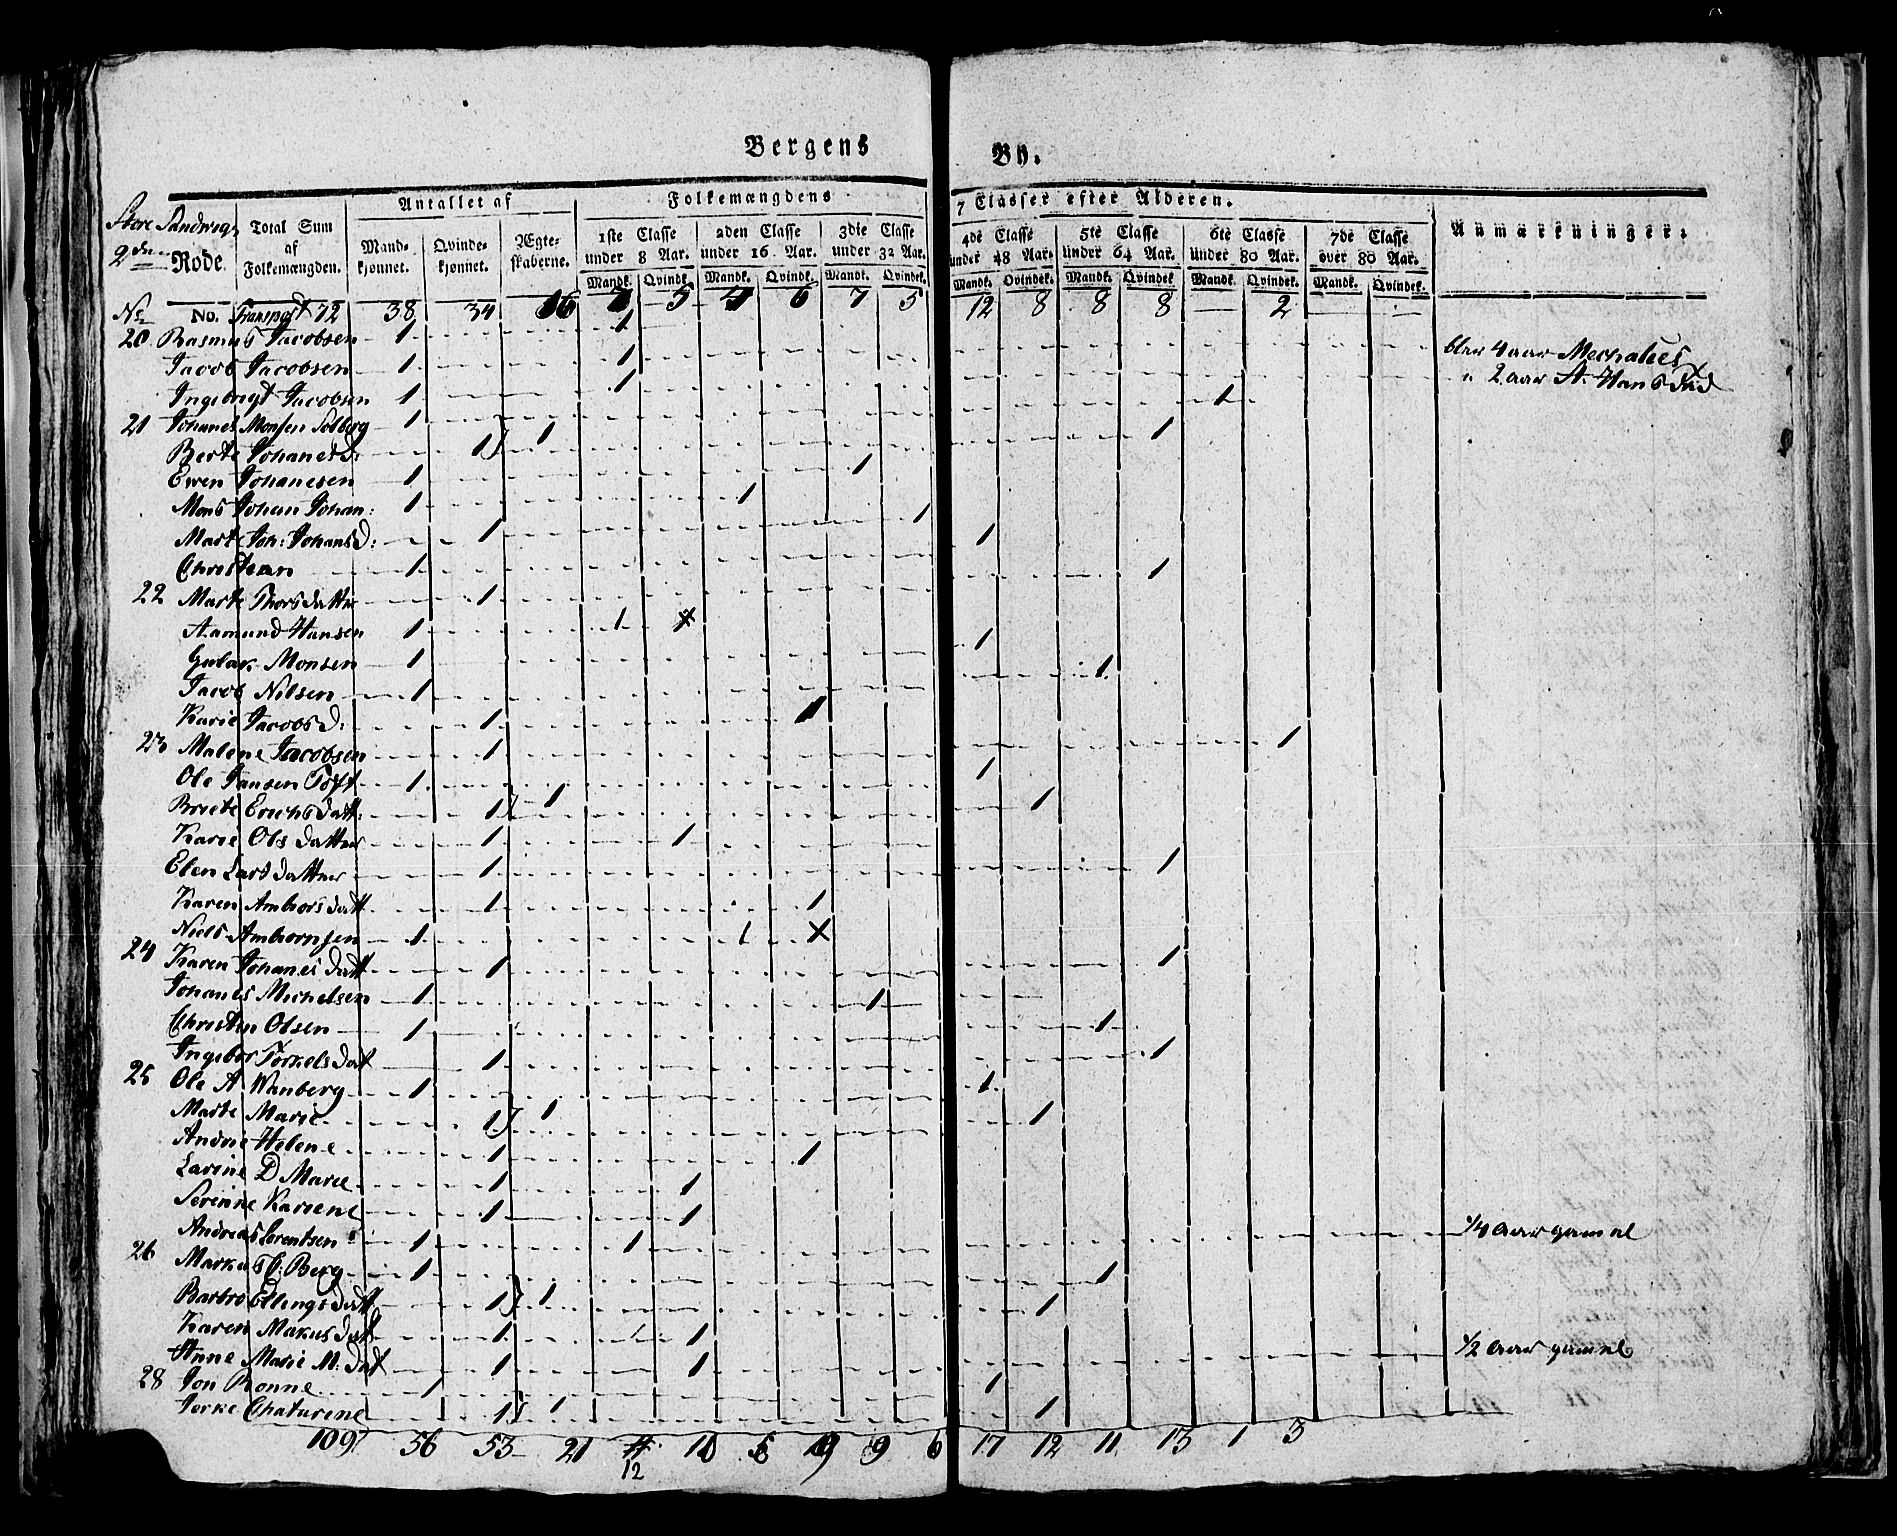 Bergens By.
Store Sandwigs
2den
Rode.
No.
Total Sum af Folkemængden.
Antallet af
Mandkjønnet.
Qvindekjønnet.
Ægteskaberne.
Folkemængdens 7 Classer efter Alderen.
1ste Classe under 8 Aar.
2den Classe under 16 Aar.
3die Classe under 32 Aar.
4de Classe under 48 Aar.
5te Classe under 64 Aar.
6te Classe under 80 Aar.
7de Classe over 80 Aar.
Mandk. Qvindk. Mandk. Qvindk. Mandk. Qvindek. Mandk. Qvindek. Mandk. Qvindek. Mandk. Qvindek. Mandk. Qvindek.
Anmærkninger.
No Transport 72 38 34 16 7 5 4 6 7 5 12 8 8 8 — 2 — —
20 Rasmus Jacobsen 1 1
Jacob Jacobsen 1 1 bler 4 aar
Ingebrigt Jacobsen 1 1 " 2 aar A. Hans
21 Johanes Monsen Solberg 1 1
Berte Johanesd: 1 1 1
Ewen Johanesen 1 1
Mons Johan Johan: 1 1
Marte Joh: Johansd: 1 1
Christian 1 1
22 Marte Thorsdatter 1 1
Aamund Hansen 1 1
Gulak Monsen 1 1
Jacob Nilsen 1 1
Karie Jacobsd: 1 1
23 Malene Jacobsen 1 1
Ole Jansen Toft 1 1
Briete Erichsdatt: 1 1 1
Karie Olsdatter 1 1
Elen Larsdatter 1 1
Karen Amborsdatt 1 1
Niels Ambornsen 1 1
24 Karen Johanesdatt 1 1
Johanes Michelsen 1 1
Christen Olsen 1 1
Ingebor Torkelsdat 1 1
25 Ole A Wanberg 1 1
Marte Marie 1 1 1
Andrie Helene 1 1
Larine D Marie 1 1
Serinne Kariene 1 1
Andreas Lorentsen 1 1 1/4 Aar gamel
26 Markus C: Berg 1 1
Barbro Ellingsdatt 1 1 1
Karen Makusdatt 1 1
Anne Marie M. dat 1 1 1/2 Aar gamel
28 Jon Rønne 1 1
Jerke Chaturine 1 1 1
109 56 53 21 12 10 9 9 6 17 12 11 13 1 3